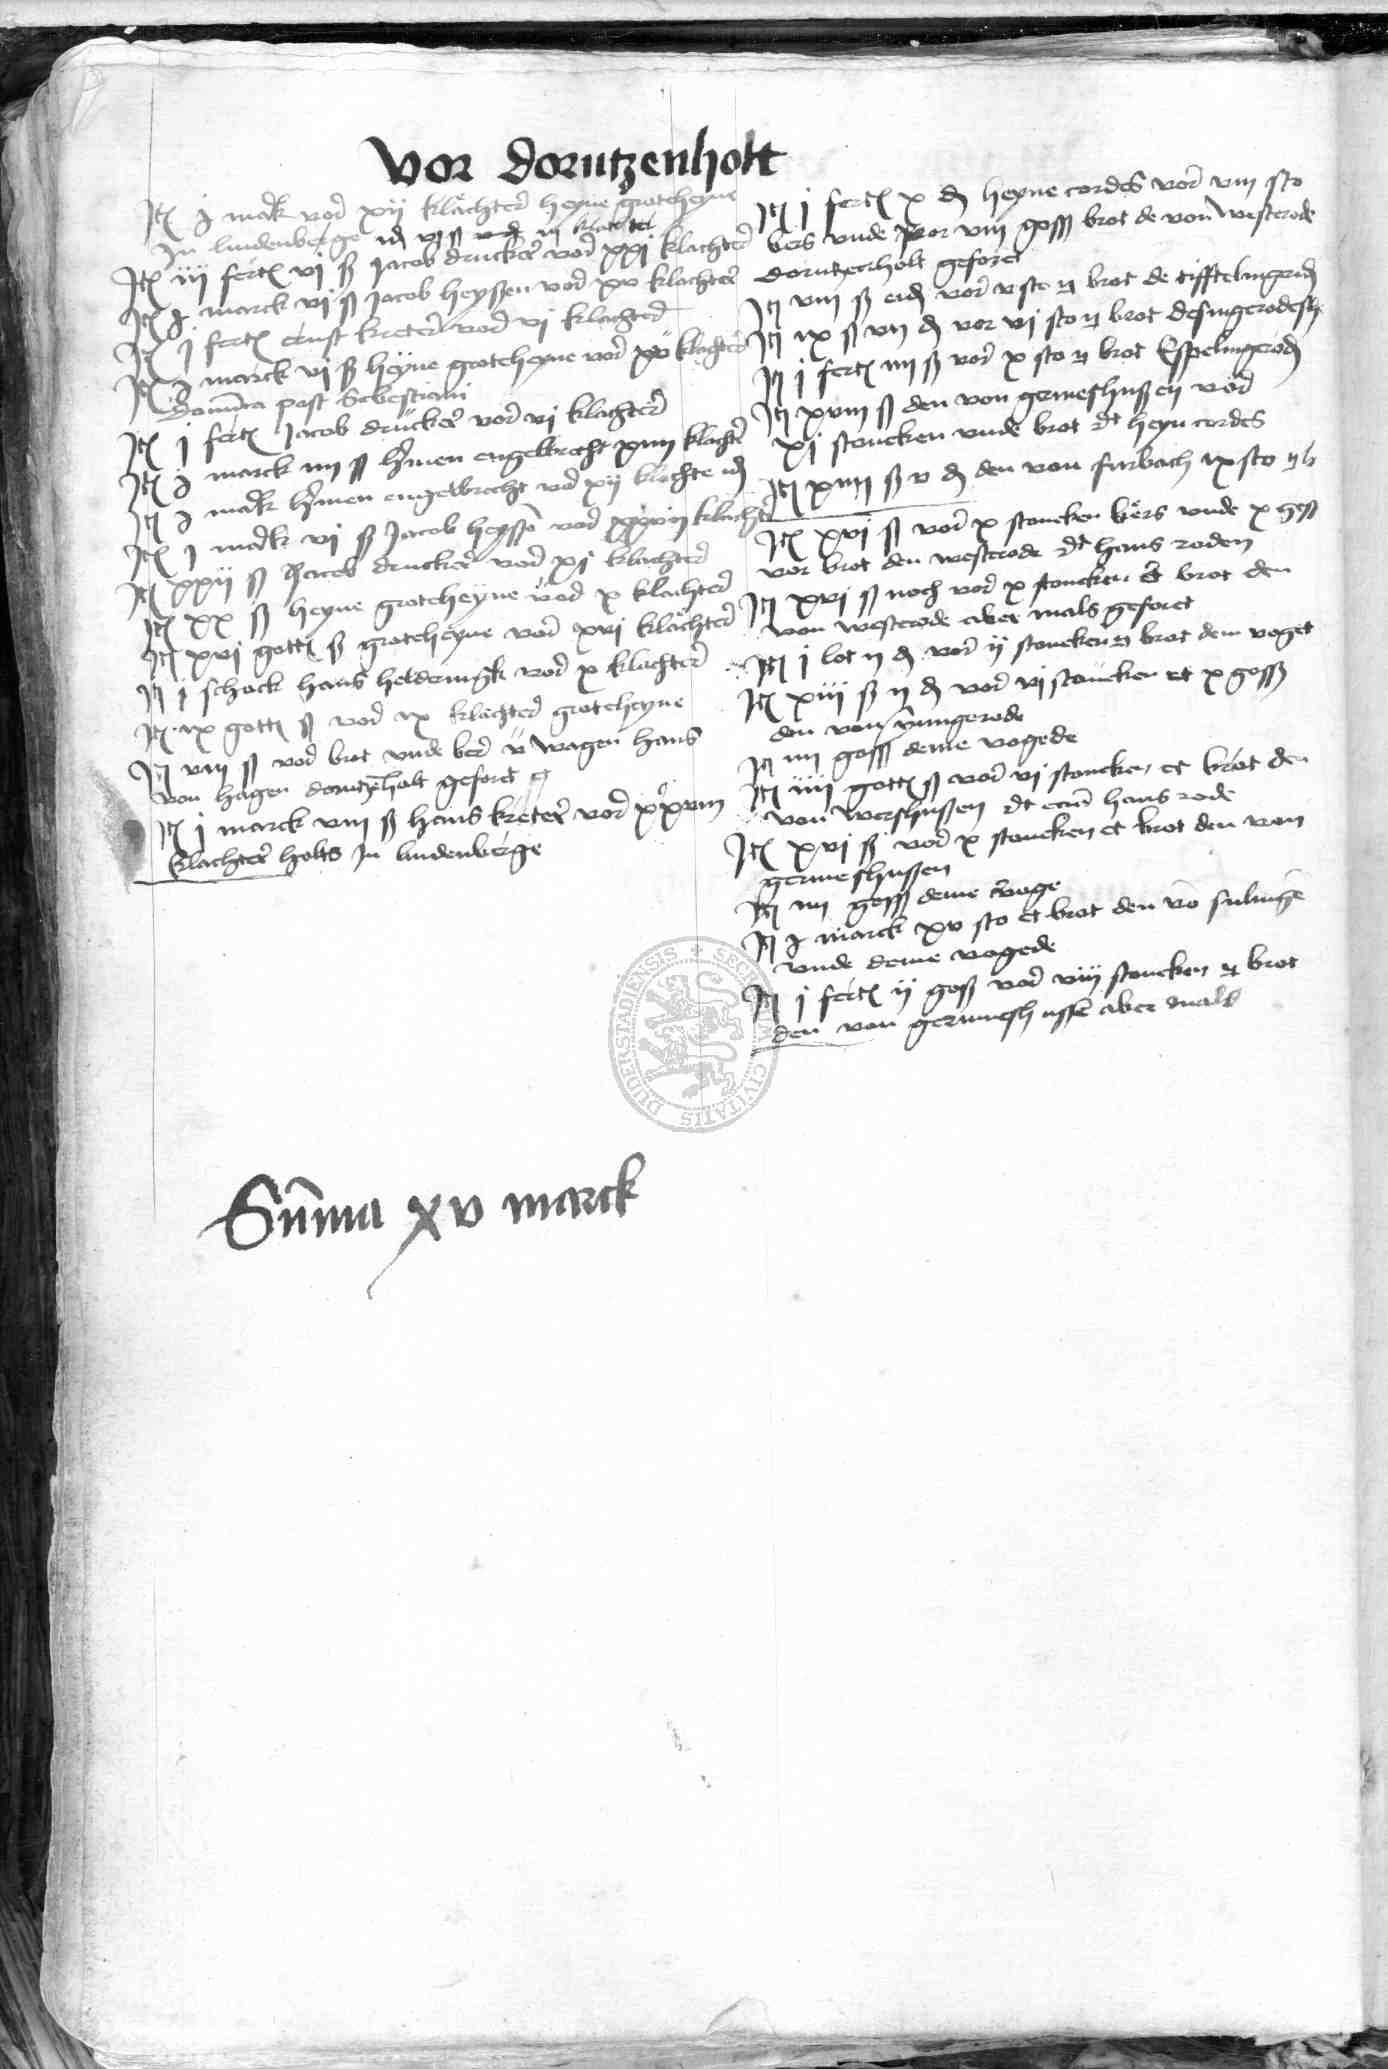 vor dorntzenholt
Itē j marck vor xij klachter heyne groteheyne
In lindenberge
Itē iij fertē vj ß Jacob drucker vor xxj klachter
Itē j marck vj ß Jacob heyssen vor xv klachter
Itē j fertē ernst kreter vor vj klachter
Itē j marck vj ß heyne groteheyne vor xv klachter
Domīca post Sebestiani
Itē j fertē Jacob drucker vor vj klachter
Itē j marck iiij ß hermen engelbrecht xiiij klachter
Itē j marck hermen engelbrecht vor xij klachte
Itē j marck vij ß Jacob heyssē vor klachter
Itē xxij ß Jacob drucker vor xj klachter
Itē xx ß heyne groteheyne vor x klachter
Itē xvj gottē ß groteheyne vor xvj klachter
Itē j schock hans helderingk vor x klachter
Itē ix gottē ß vor ix klachter groteheyne
Itē viij ß vor brot vnde ber v wagen hans
von hagen dorntzēholt geforet
Itē j marck viij ß hans kreter vor xxviij
klachter holts In lindenberge
Itē j fertē x ₰ heyne cordes vor viij sto
bers vnde vor viij goss brot de von westerode
dorntzenholt geforet
Itē viij ß vor v sto brot de tifftelingerod
Itē ix ß vij ₰ vor vj sto brot desingerodesch
Itē j fertē iiij ß vor x sto brot Espelingerod
Itē xviij ß den von germeshussen vor
xj stoueken vnde brot dt heyn cordes
Itē xiiij ß v ₰ den von furbach ix sto
Itē xvj ß vor x stoueken bers vnde x goss
vor brot den westerode dt hans roden
Itē xvj ß noch vor x stoueken et brot den
von westerode aber mals geforet
Itē j lot ij ₰ vor ij stoueken brot dem voget
Itē xiij ß ij ₰ vor vj stoueken et x goss
den von ymmgerode
Itē iiij goss deme vogede
Itē iiij gottē ß vor vj stoueken et brot den
von wershussen dt hans rode
Itē xvj ß vor x stoueken et brot den von
germeshussen
Itē iiij goss deme voge
Itē j marck xv sto et brot den vō sulingē
vnde deme vogede
Itē j fertē ij goss vor viij stoueken brot
den von germeshussē aber mals
Sūma xv marck
SECRETUM CIVITATIS DUDERSTADIENSIS